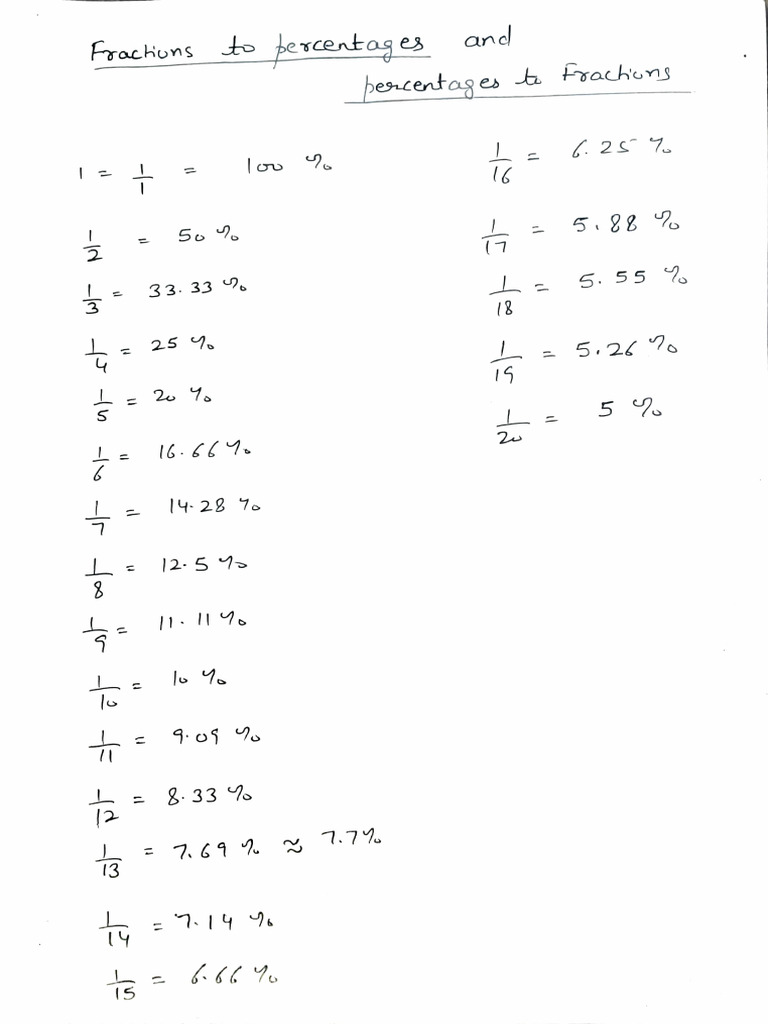 Fractions to percentages and
percentages to Fractions
1 = 1/1 = 100 %
1/2 = 50 %
1/3 = 33.33 %
1/4 = 25 %
1/5 = 20 %
1/6 = 16.66 %
1/7 = 14.28 %
1/8 = 12.5 %
1/9 = 11.11 %
1/10 = 10 %
1/11 = 9.09 %
1/12 = 8.33 %
1/13 = 7.69 % ≈ 7.7 %
1/14 = 7.14 %
1/15 = 6.66 %
1/16 = 6.25 %
1/17 = 5.88 %
1/18 = 5.55 %
1/19 = 5.26 %
1/20 = 5 %